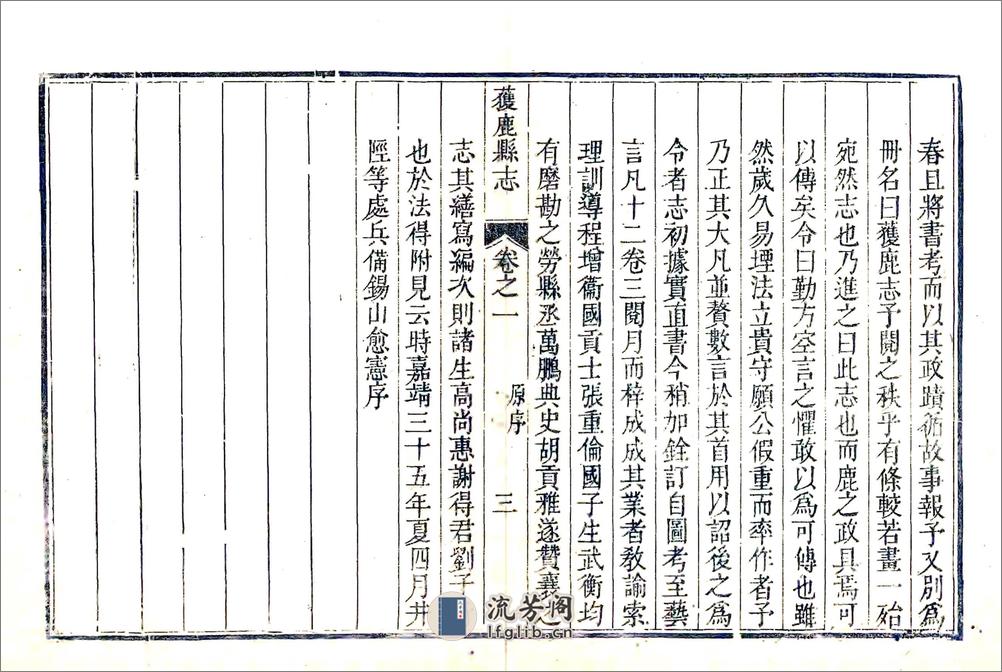 春且將書考而以其政蹟循故事報予又別爲
冊名曰獲鹿志予閱之秩乎有條較若畫一殆
宛然志也乃進之曰此志也而鹿之政具焉可
以傳矣令曰勤方空言之懼敢以爲可傳也雖
然歲久易堙法立貴守願公假重而率作者予
乃正其大凡並贅數言於其首用以詔後之爲
令者志初據實直書今稍加銓訂自圖考至藝
言凡十二卷三閱月而梓成成其業者教諭索
理訓導程增衞國貢士張重倫國子生武衡均
有磨勘之勞縣丞萬鵬典史胡貢雅遂贊襄
獲鹿縣志 卷之一 原序 三
志其繕寫編次則諸生高尚惠謝得君劉子
也於法得附見云時嘉靖三十五年夏四月井
陘等處兵備錫山愈憲序
流芳閣
lfglib.cn